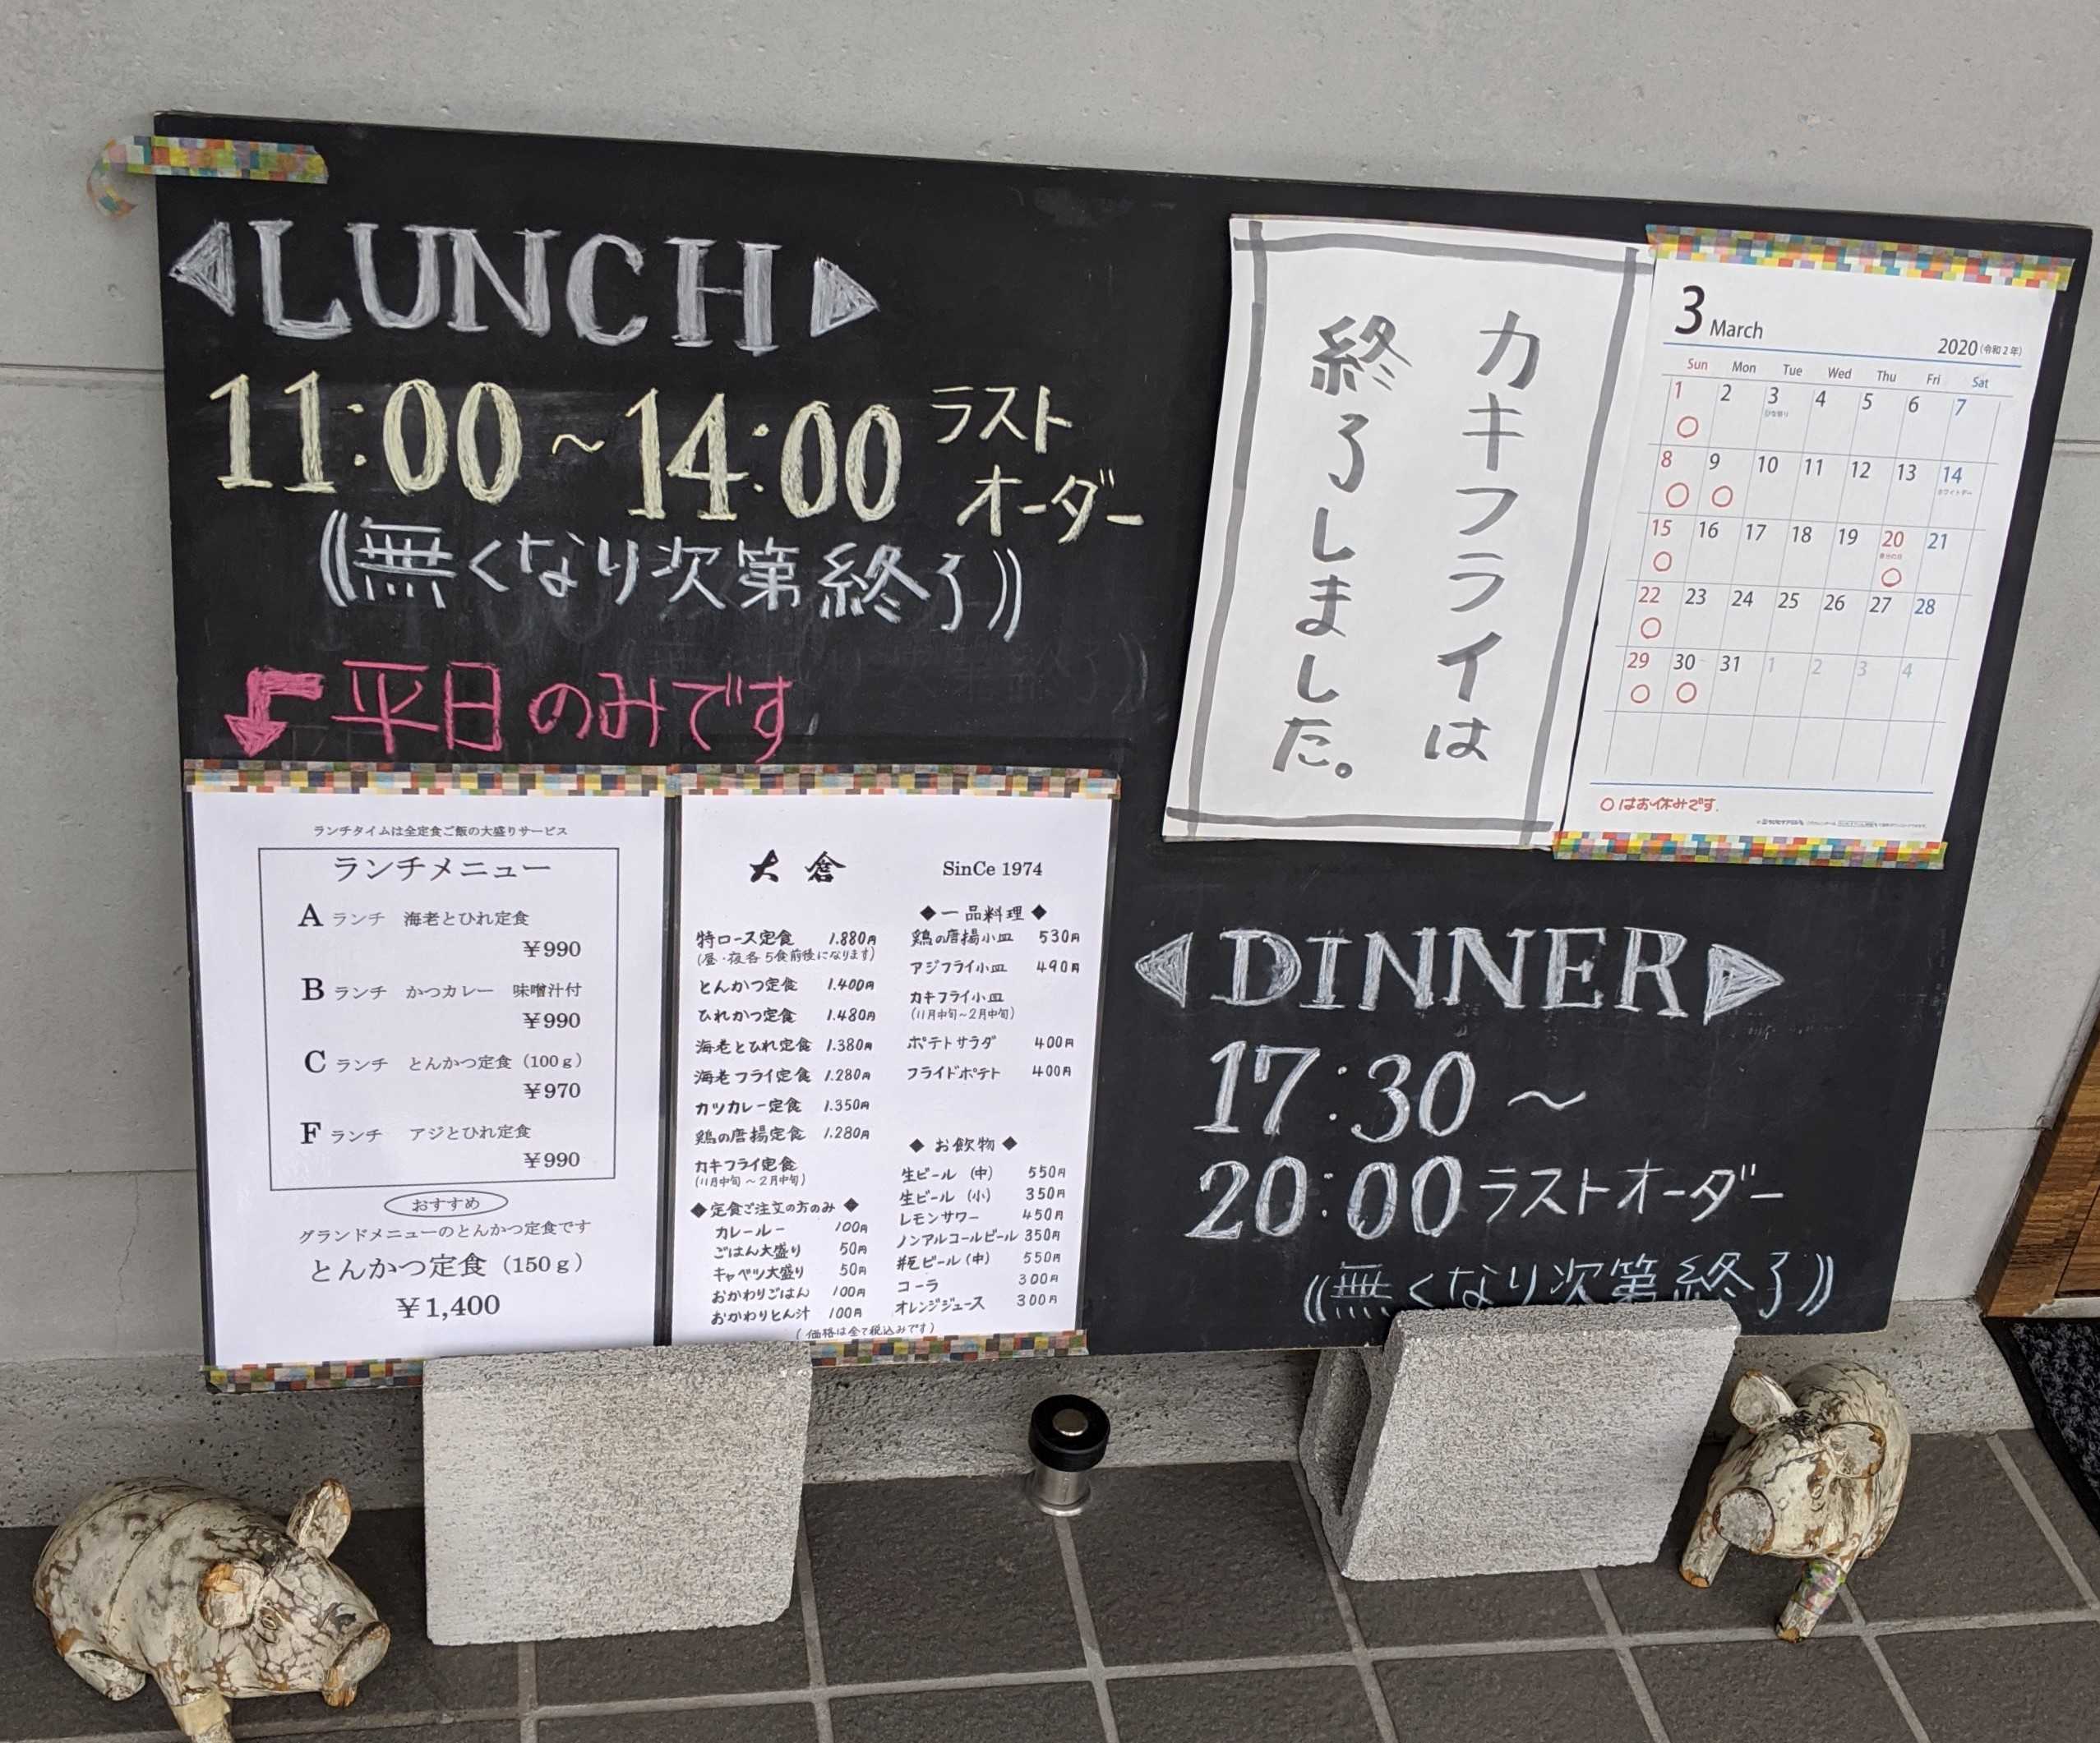 LUNCH
11:00~14:00 ラスト
オーダー
((無くなり次第終了))
平日のみです
ランチタイムは全定食ご飯の大盛りサービス
ランチメニュー
A ランチ 海老とひれ定食
¥990
B ランチ かつカレー 味噌汁付
¥990
C ランチ とんかつ定食 (100g)
¥970
F ランチ アジとひれ定食
¥990
おすすめ
グランドメニューのとんかつ定食です
とんかつ定食 (150g)
¥1,400
大倉 SinCe 1974
特ロース定食 1.880円
(昼・夜各5食前後になります)
とんかつ定食 1.400円
ひれかつ定食 1.480円
海老とひれ定食 1.380円
海老フライ定食 1.280円
カツカレー定食 1.350円
鶏の唐揚定食 1.280円
カキフライ定食
(11月中旬~2月中旬)
◆定食ご注文の方のみ◆
カレールー 100円
ごはん大盛り 50円
キャベツ大盛り 50円
おかわりごはん 100円
おかわりとん汁 100円
◆一品料理◆
鶏の唐揚小皿 530円
アジフライ小皿 490円
カキフライ小皿
(11月中旬~2月中旬)
ポテトサラダ 400円
フライドポテト 400円
◆お飲物◆
生ビール (中) 550円
生ビール (小) 350円
レモンサワー 450円
ノンアルコールビール 350円
瓶ビール (中) 550円
コーラ 300円
オレンジジュース 300円
(価格は全て税込みです)
カキフライは
終了しました。
3 March 2020 (令和2年)
Sun Mon Tue Wed Thu Fri Sat
1 2 3 4 5 6 7
ひな祭り
8 9 10 11 12 13 14
ホワイトデー
15 16 17 18 19 20 21
春分の日
22 23 24 25 26 27 28
29 30 31 1 2 3 4
○はお休みです.
DINNER
17:30~
20:00ラストオーダー
((無くなり次第終了))